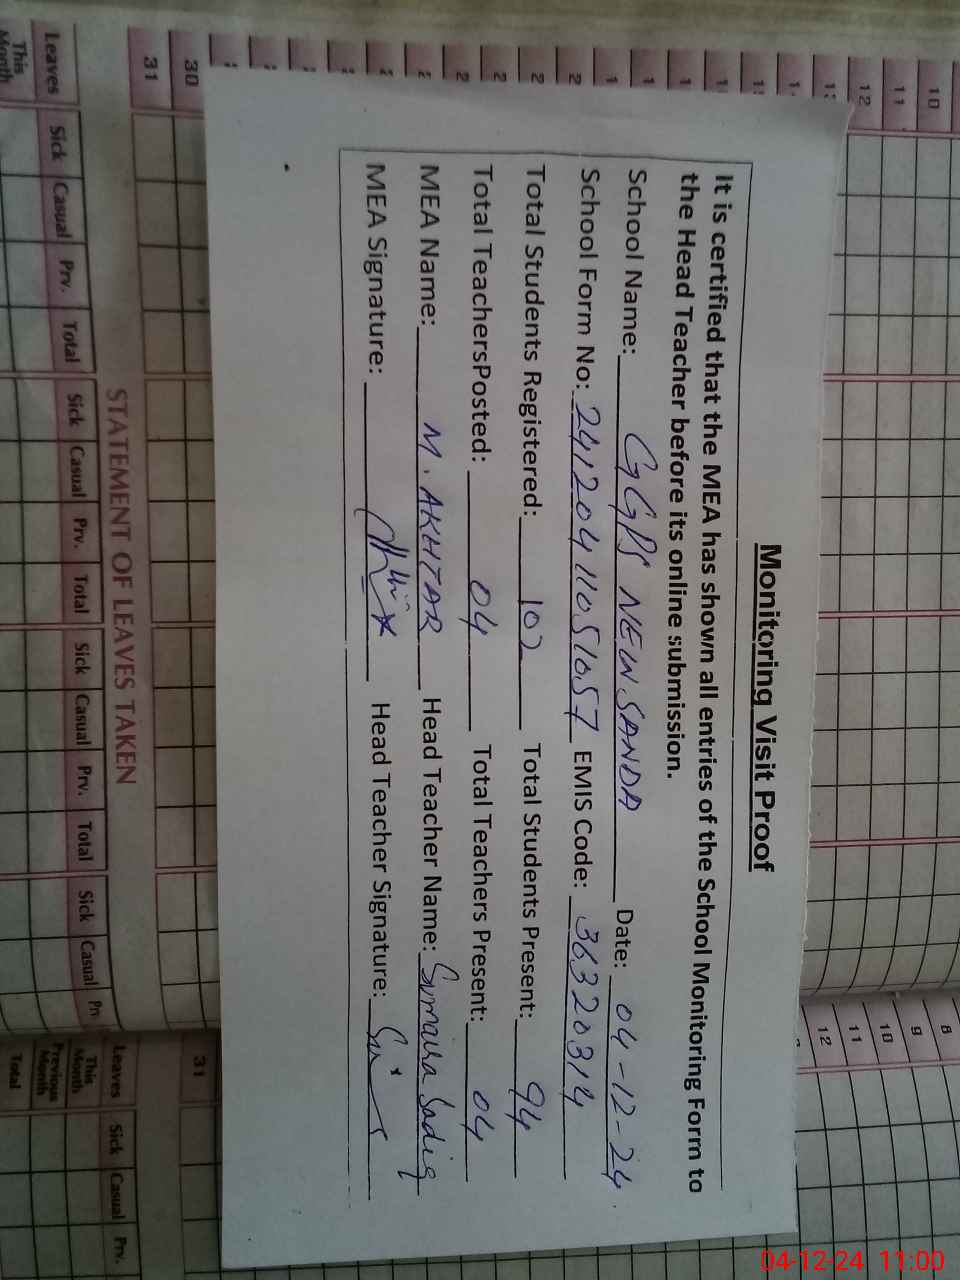 Monitoring Visit Proof
It is certified that the MEA has shown all entries of the School Monitoring Form to
the Head Teacher before its online submission.
School Name: GGPS NEW SANDA Date: 04-12-24
School Form No: 241204 11051057 EMIS Code: 36320314
Total Students Registered: 102 Total Students Present: 94
Total TeachersPosted: 04 Total Teachers Present: 04
MEA Name: M. AKHTAR Head Teacher Name: Sumaira Sadiq
MEA Signature: Head Teacher Signature:
10
11
12
30
31
STATEMENT OF LEAVES TAKEN
Sick Casual Prv. Total Sick Casual Prv. Total Sick Casual Prv. Total Sick Casual
Leaves
This
Month
8
9
10
11
12
31
Leaves Sick Casual Prv.
This
Month
Previous
Month
Total
04-12-24 11:00